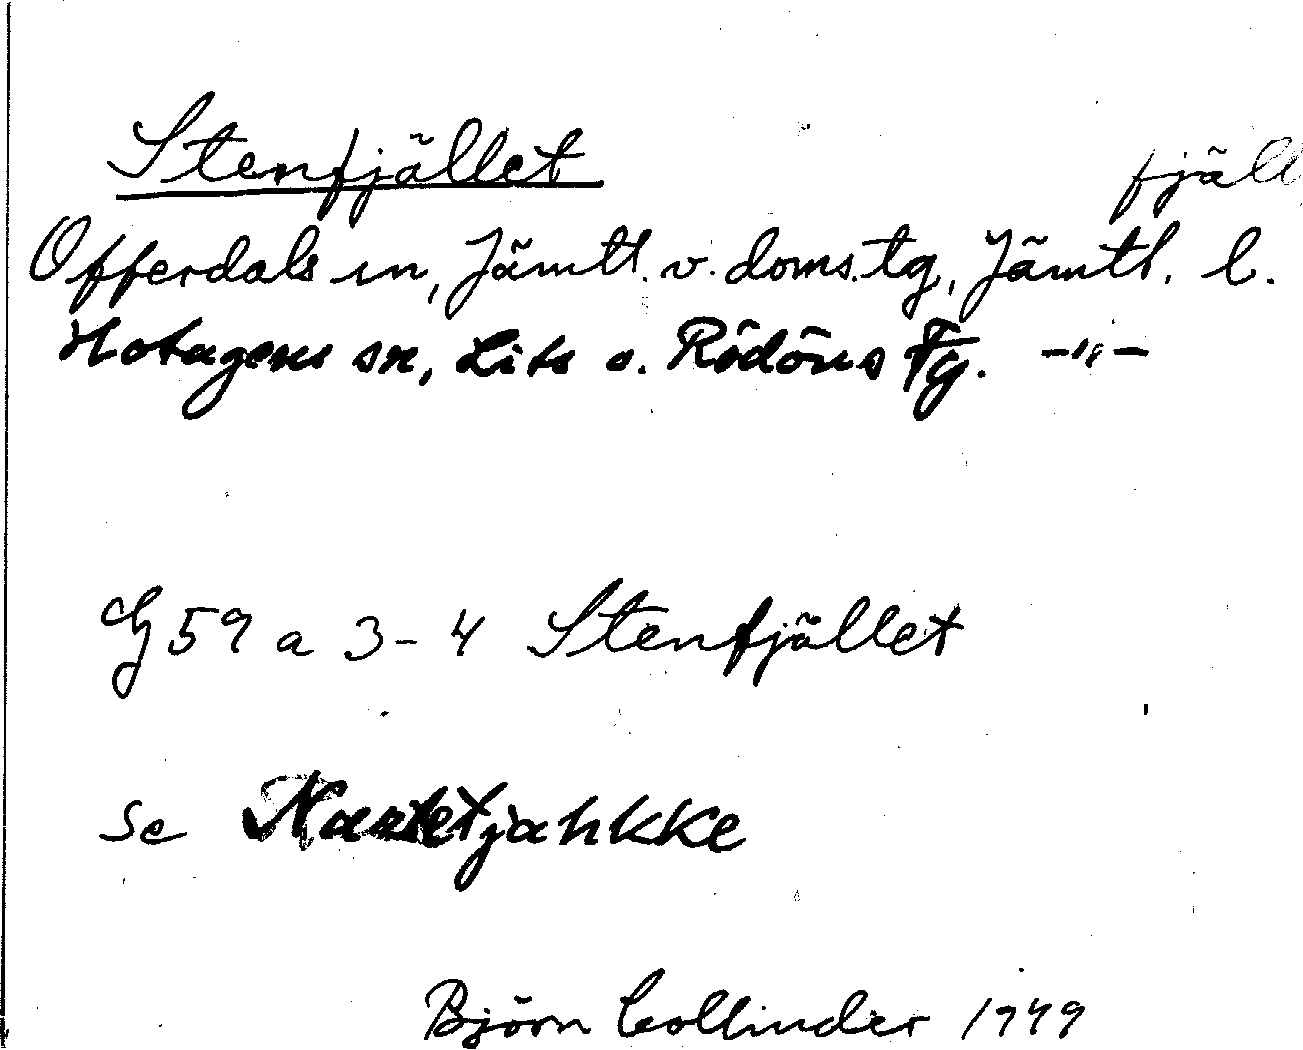 Stenfjället fjäll
Offerdals sn, Jämtl. v. doms. tg, Jämtl. l.
Hotagens sn, Lits o. Rödöns Tg. -"-
G 59 a 3-4 Stenfjället
se
Björn Collinder 1949